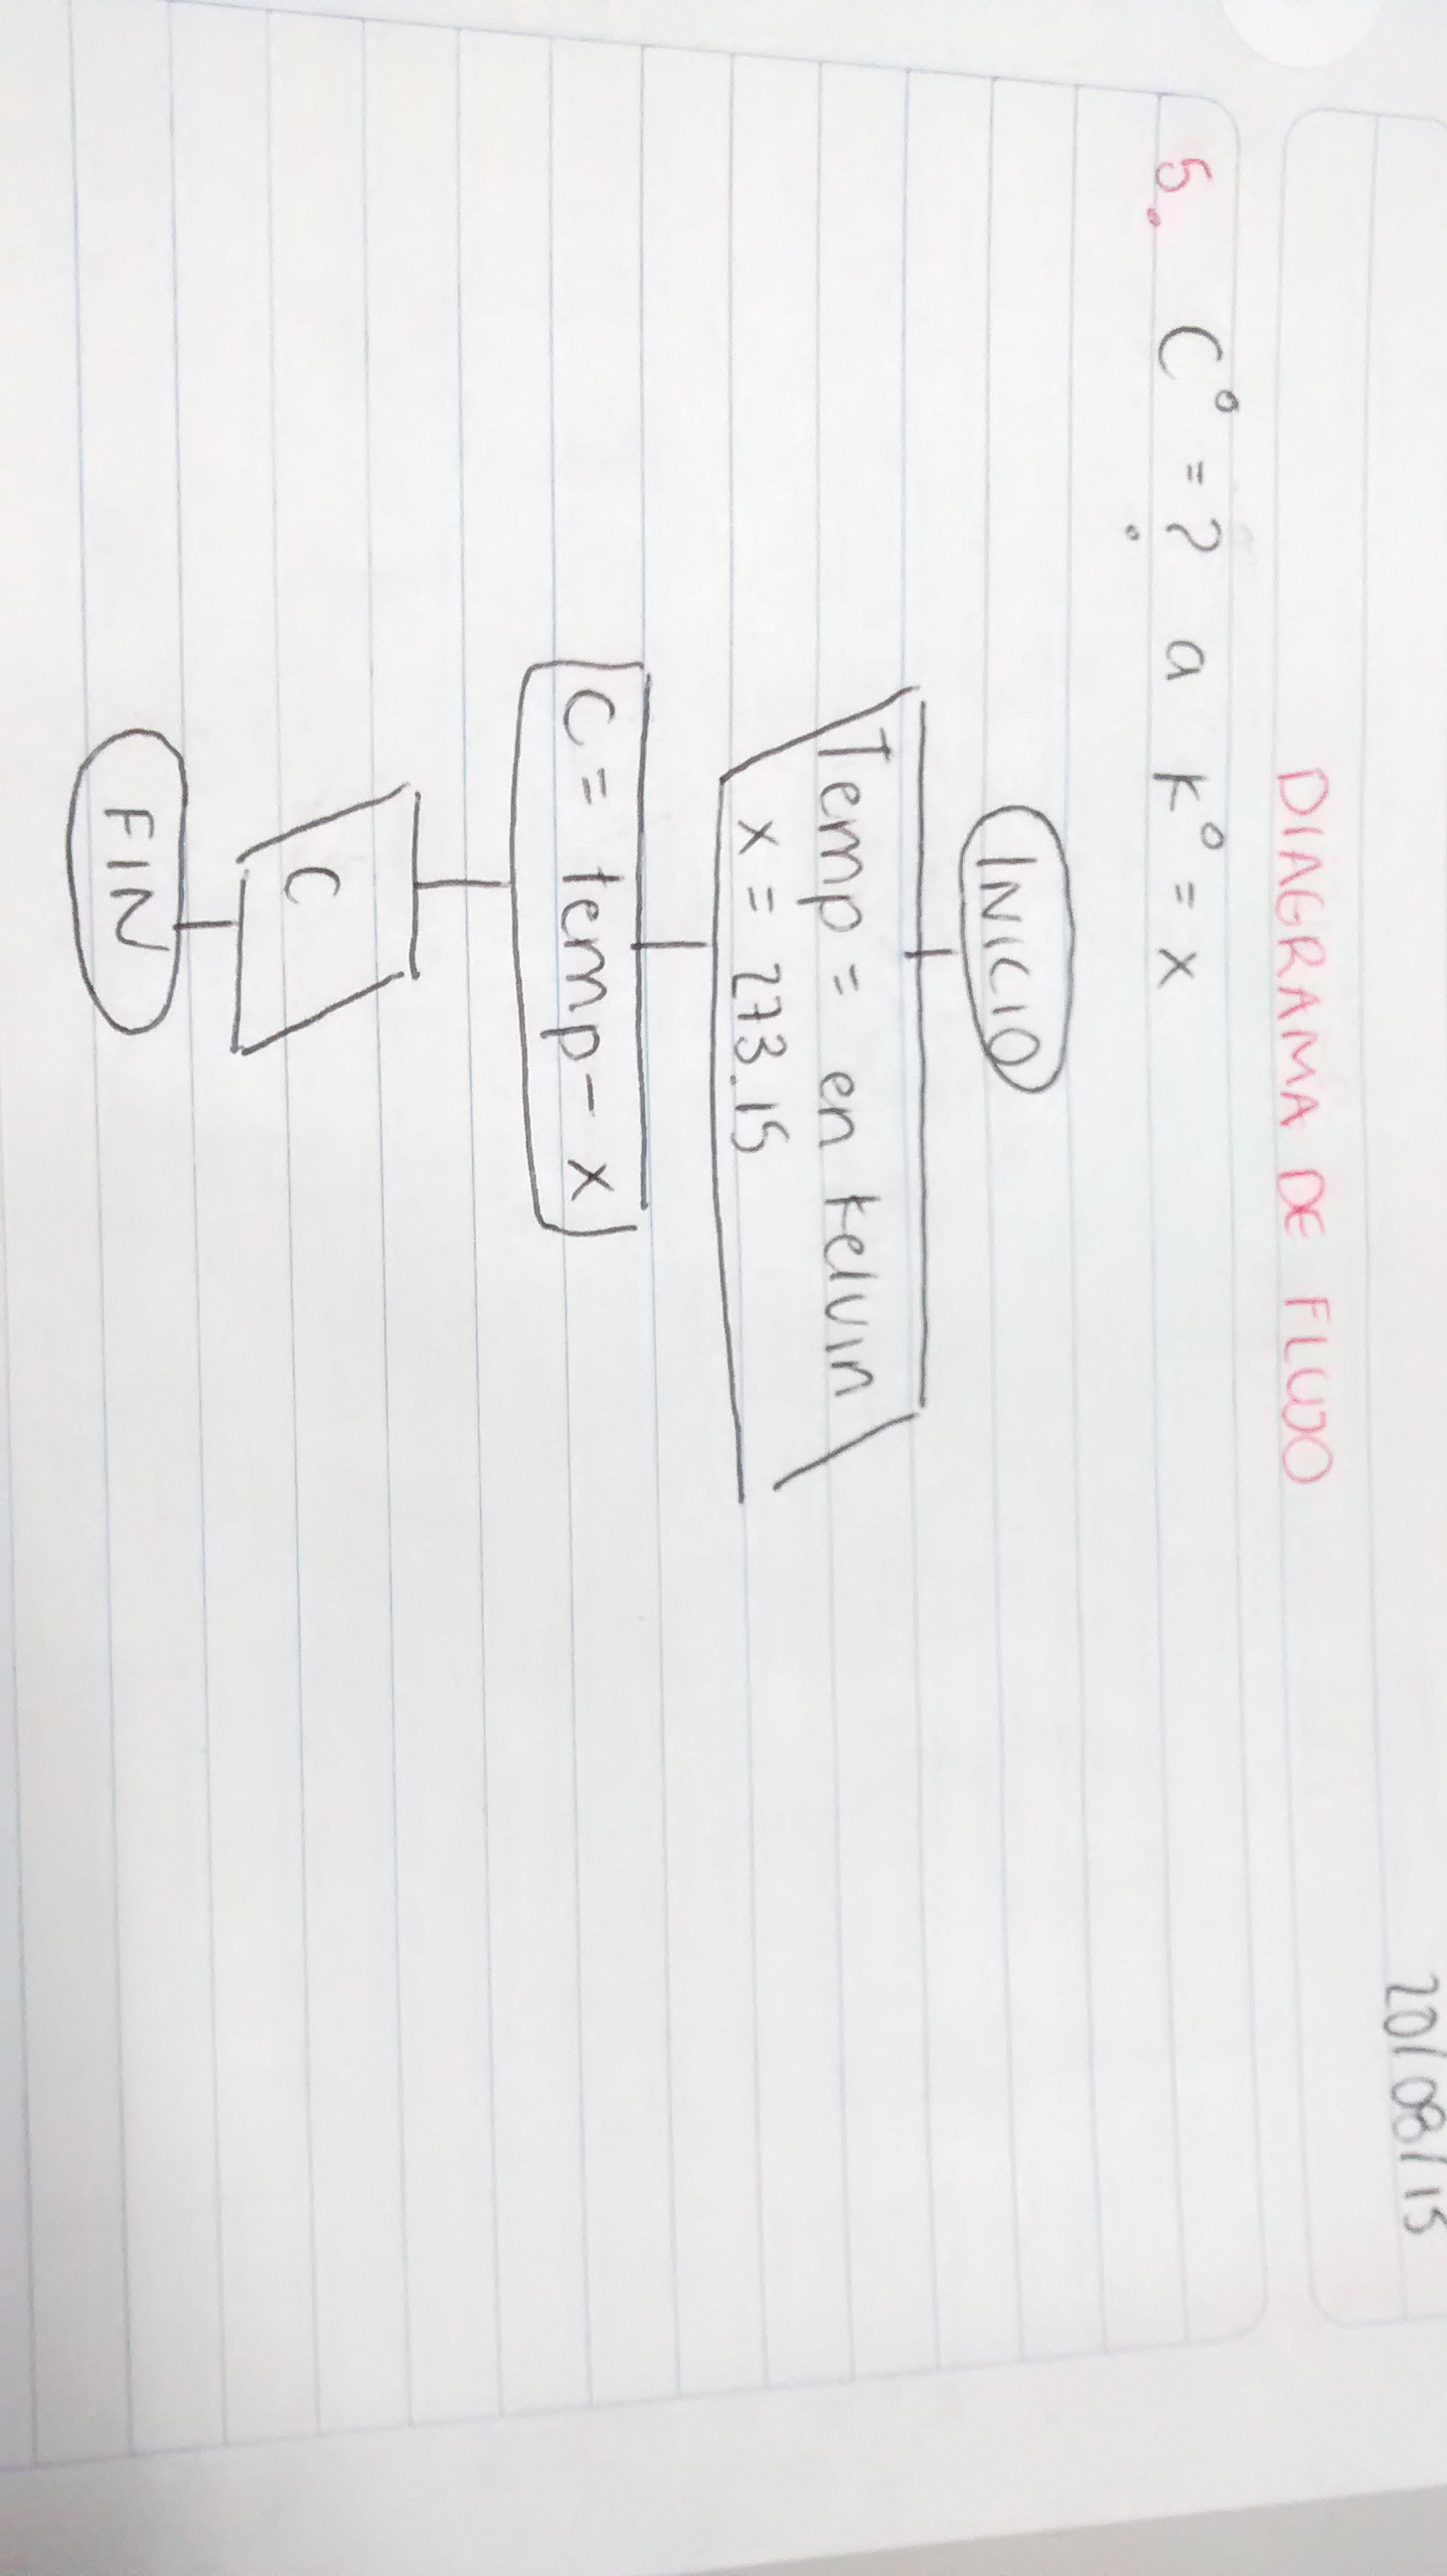 20/08/15
DIAGRAMA DE FLUJO
5. C° = ? a K° = x
INICIO
Temp = en kelvin
x = 273.15
C = temp - x
C
FIN